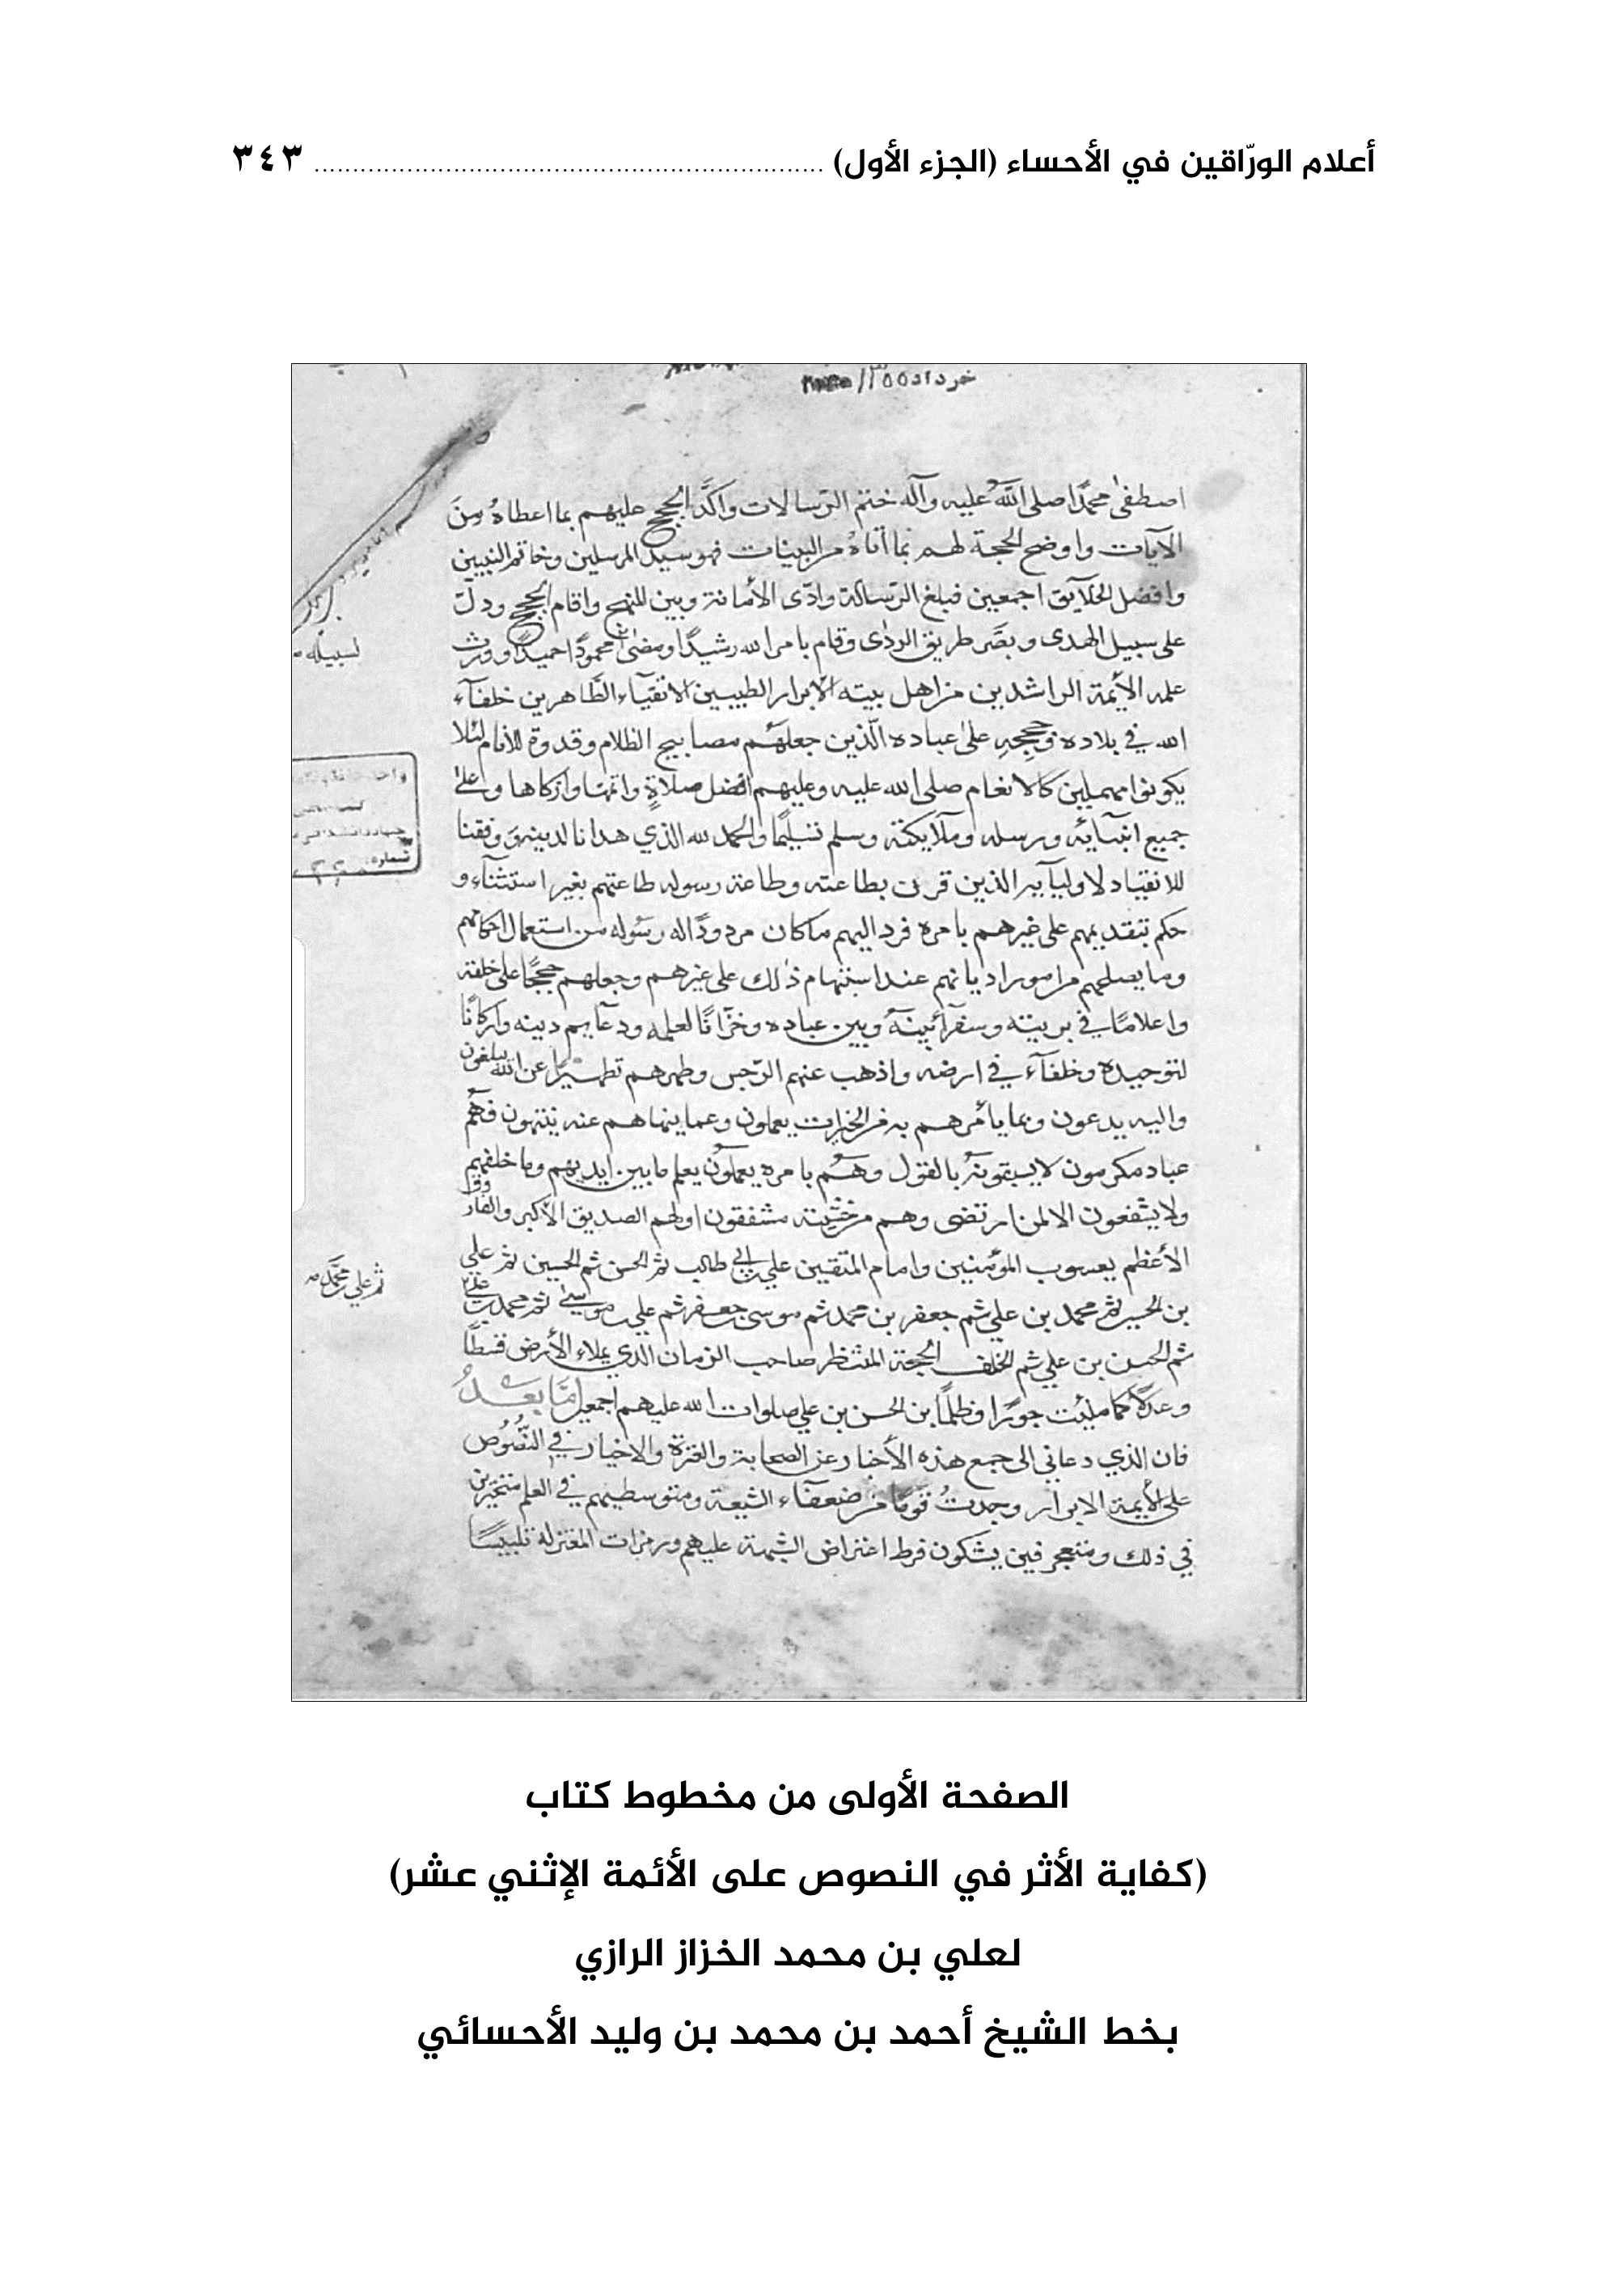 أعلام الورّاقين في الأحساء (الجزء الأول) ................................................................ ٣٤٣
خرداد
اصطفى محمدًا صلى الله عليه وآله ختم الرسالات واكَّد الحجج عليهم بما اعطاهُ مِنَ
الآيات واوضح الحجة لهم بما أتاهُ من البينات فهو سيد المرسلين وخاتم النبيين
وافضل الخلآيق اجمعين فبلغ الرسالة وادّى الأمانة وبين المنهج واقام الحجج ودلّ
على سبيل الهدى وبصّر طريق الردى وقام بامر الله رشيدًا ومضى محمودًا حميدًا وورث
علمه الأيمة الراشدين من اهل بيته الابرار الطيبين الاتقيآء الطّاهرين خلفآء
الله في بلاده وحججه على عباده الّذين جعلهم مصابيح الظلام وقدوة للأنام لئلا
يكونوا مهملين كالانعام صلى الله عليه وعليهم افضل صلاةٍ واتمها وازكاها وعلى
جميع انبيآئه ورسله وملآيكته وسلم تسليمًا والحمد لله الذي هدانا لدينه ووفقنا
للانقياد لاوليآيه الذين قرن بطاعته وطاعة رسوله طاعتهم بغير استثنآء و
حكم بتقديمهم على غيرهم بامره فرد اليهم ما كان مردودًا اله رسوله من استعمال احكامهم
وما يصلحهم من امور اديانهم عند استبهام ذلك على غيرهم وجعلهم حججًا على خلقه
واعلامًا في بريته وسفرآء بينهُ وبين عباده وخزّانًا لعلمه ودعآيم دينه واركانًا
لتوحيده وخلفآء في ارضه واذهب عنهم الرّجس وطهرهم تطهيرًا عن الله يبلغون
واليه يدعون وبما يأمرهم به من الخيرات يعملون وعما ينهاهم عنه ينتهون فهُم
عباد مكرمون لايسبقونهُ بالقول وهُم بامره يعملون يعلم مابين ايديهم وما خلفهم
ولايشفعون الا لمن ارتضى وهم من خشيته مشفقون اولهم الصديق الأكبر والفاروق
الأعظم يعسوب المؤمنين وامام المتقين علي بن ابي طالب ثم الحسن ثم الحسين ثم علي
بن الحسين ثم محمد بن علي ثم جعفر بن محمد ثم موسى بن جعفر ثم علي بن موسى ثم محمد بن علي
ثم علي بن محمد
ثم الحسن بن علي ثم الخلف الحجة المنتظر صاحب الزمان الذي يملاء الأرض قسطًا
وعدلًا كما ملئت جورًا وظلمًا بن الحسن بن علي صلوات الله عليهم اجمعين امّا بعدُ
فان الذي دعاني الى جمع هذه الأخبار عن الصحابة والعترة والاخيار في النّصُوص
على الأيمة الابرار وجدتُ قومًا من ضعفآء الشيعة ومتوسطيهم في العلم متحيرين
في ذلك ومتعجرفين يشكون فرط اعتراض الشبهة عليهم وزمرات المعتزلة تلبيسًا
لسبيله
شماره:
الصفحة الأولى من مخطوط كتاب
(كفاية الأثر في النصوص على الأئمة الإثني عشر)
لعلي بن محمد الخزاز الرازي
بخط الشيخ أحمد بن محمد بن وليد الأحسائي